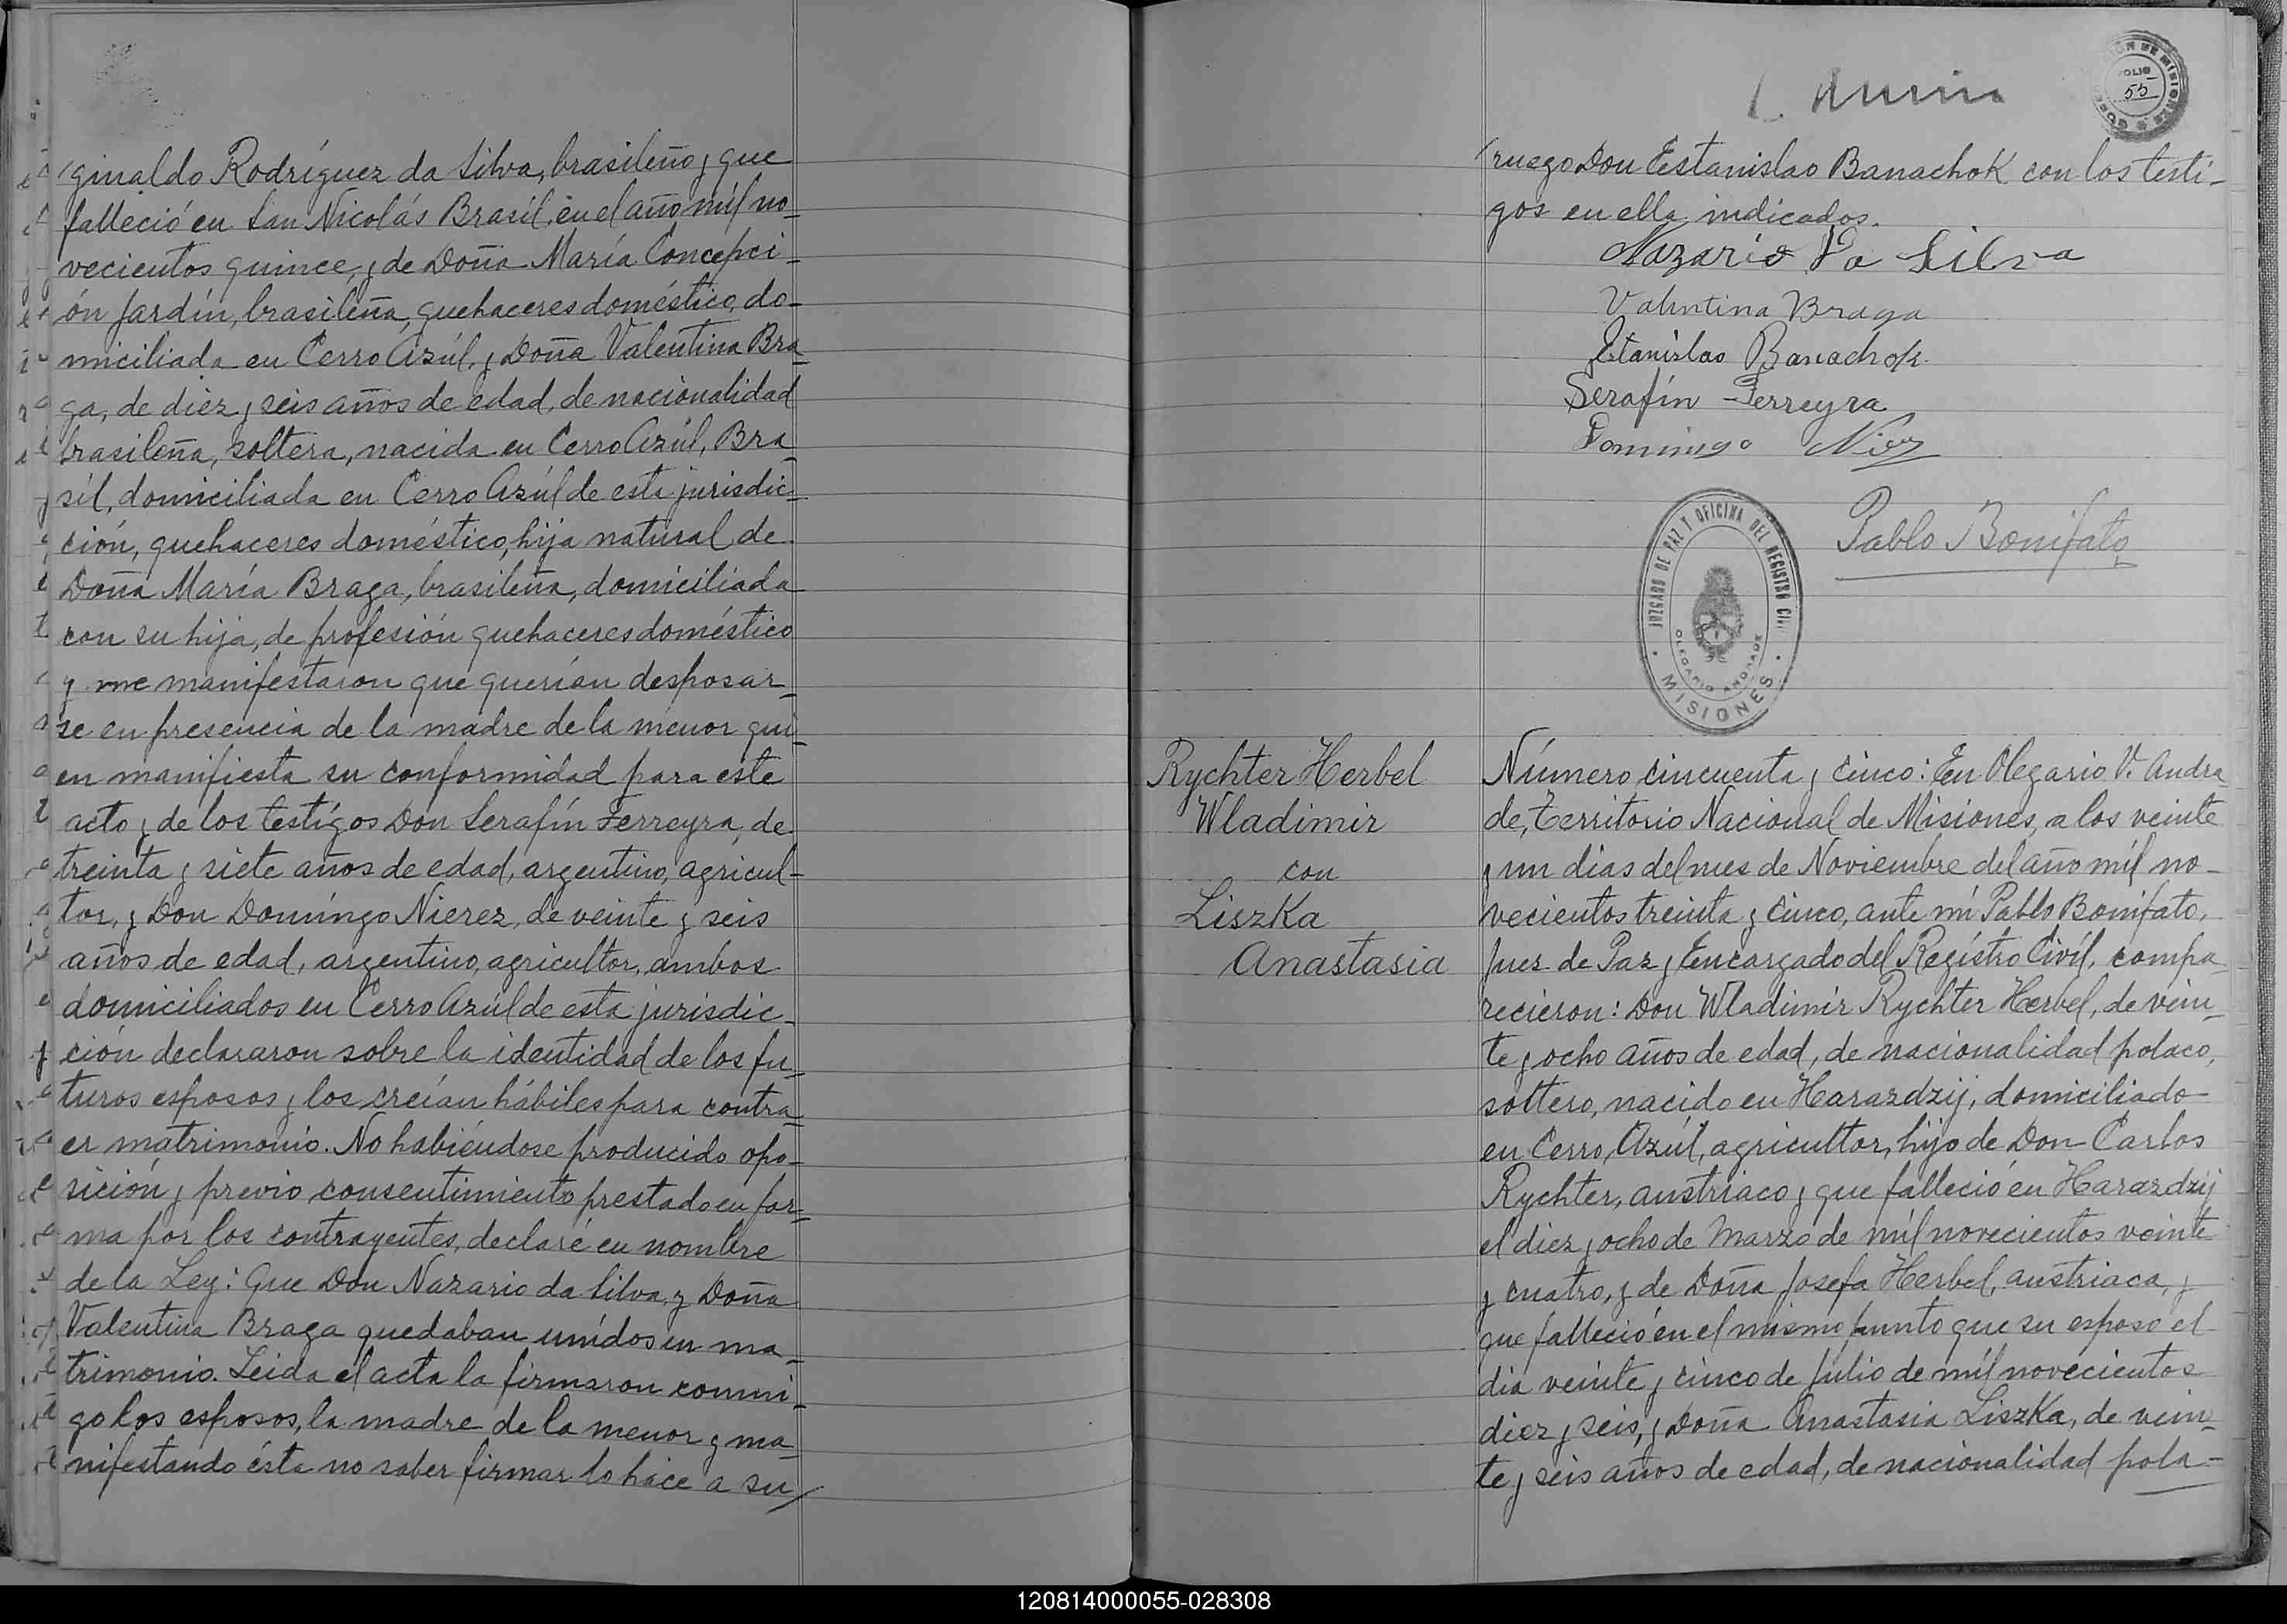 ginaldo Rodríguez da Silva, brasileño y que
falleció en San Nicolás Brasil, en el año mil no-
vecientos quince, y de Doña María Concepci-
ón Jardín, brasileña, quehaceres doméstico, do-
miciliada en Cerro Azúl, y Doña Valentina Bra-
ga, de diez y seis años de edad, de nacionalidad
brasileña, soltera, nacida en Cerro Azúl, Bra-
sil, domiciliada en Cerro Azúl de esta jurisdic-
ción, quehaceres doméstico, hija natural de
Doña María Braga, brasileña, domiciliada
con su hija, de profesión quehaceres doméstico
y me manifestaron que querían desposar-
se en presencia de la madre de la menor qui-
en manifiesta su conformidad para este
acto y de los testígos Don Serafín Ferreyra, de
treinta y siete años de edad, argentino, agricul-
tor, y Don Domíngo Nierez, de veinte y seis
años de edad, argentino, agricultor, ambos
domiciliados en Cerro Azúl de esta jurisdic-
ción declararon sobre la identidad de los fu-
turos esposos y los creían hábiles para contra-
er matrimonio. No habiéndose producido opo-
sición y previo consentimiento prestado en for-
ma por los contrayentes, declaré en nombre
de la Ley: Que Don Nazario da Silva y Doña
Valentina Braga quedaban unídos en ma-
trimonio. Leida el acta la firmaron conmi-
go los esposos, la madre de la menor y ma-
nifestando ésta no saber firmar lo hace a su/
FOLIO
55
/ruego Don Estanislao Banachok con los testi-
gos en ella indicados.
Nazario Da Silva
Valentina Braga
Estanislao Banachok
Serafín Ferreyra
Domingo
Pablo Bonifato
JUZGADO DE PAZ Y OFICINA DEL REGISTRO CIVIL
OLEGARIO ANDRADE
MISIONES
Rychter Herbel
Wladimir
con
Liszka
Anastasia
Número cincuenta y cinco: En Olegario V. Andra-
de, Territorio Nacional de Misiones, a los veinte
y un dias del mes de Noviembre del año míl no-
vecientos treinta y cinco, ante mí Pablo Bonifato,
Juez de Paz y Encargado del Regístro Civíl, compa-
recieron: Don Wladimir Rychter Herbel, de vein-
te y ocho años de edad, de nacionalidad polaco,
soltero, nacido en Harazdzij, domiciliado
en Cerro Azúl, agricultor, hijo de Don Carlos
Rychter, austríaco y que falleció en Harazdzij
el diez y ocho de Marzo de mil novecientos veinte
y cuatro, y de Doña Josefa Herbel, austriaca, y
que falleció en el mismo punto que su esposo el
dia veinte y cinco de Julio de mil novecientos
diez y seis, y Doña Anastasia Liszka, de vein-
te y seis años de edad, de nacionalidad pola-
120814000055-028308